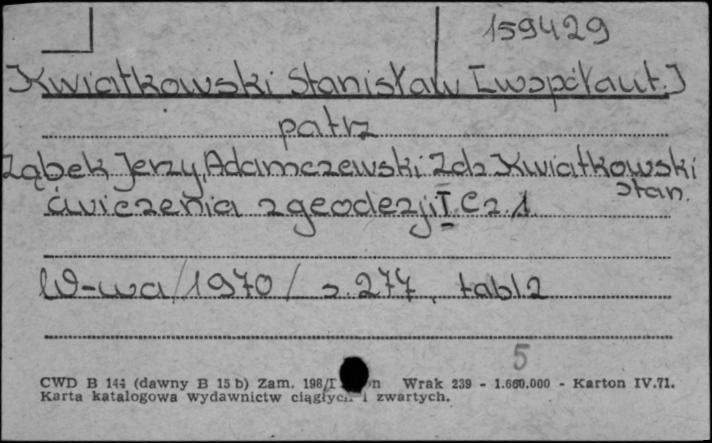 159429
Kwiatkowski Stanisław [współaut.]
patrz
Ząbek Jerzy, Adamczewski Zdz Kwiatkowski
Stan.
ćwiczenia z geodezji I. Cz 1
W-wa /1970/ s. 277, tabl 2
5
CWD B 144 (dawny B 15 b) Zam. 198/I n Wrak 239 - 1.660.000 - Karton IV.71.
Karta katalogowa wydawnictw ciągłych i zwartych.